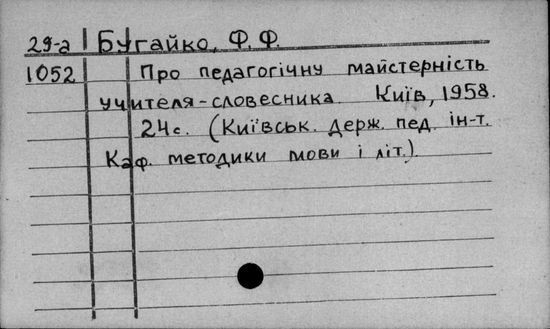 29-а Бугайко, Ф. Ф.
1052 Про педагогічну майстерність
учителя-словесника. Київ, 1958.
24с. (Київськ. держ. пед. ін-т.
Каф. методики мови і літ.).